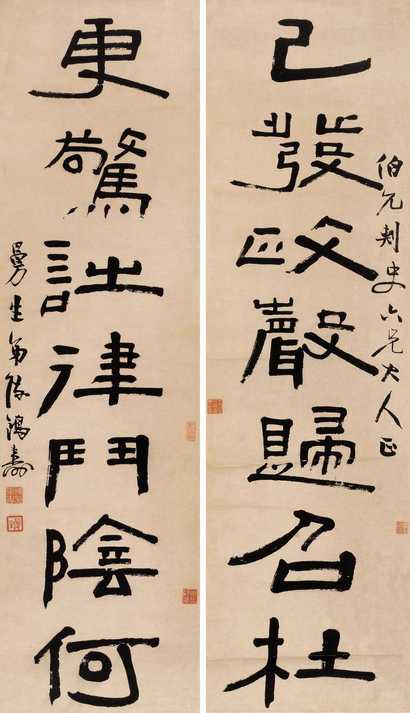 伯允刺史六兄大人正
已發政聲歸召杜
更驚詩律鬥陰何
曼生弟陳鴻壽